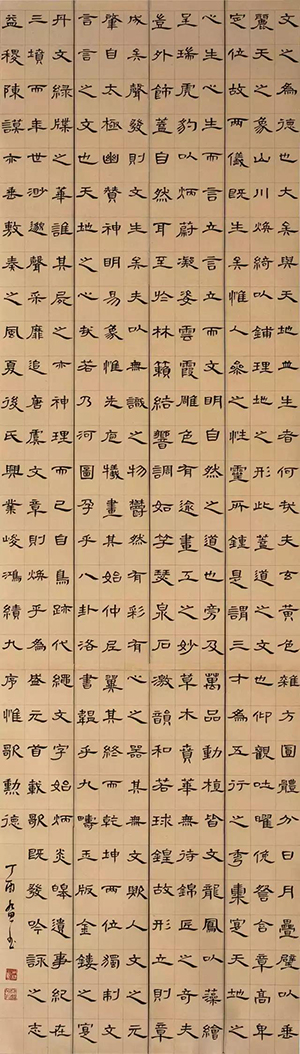 文之為德也大矣與天地並生者何哉夫玄黃色雜方圓體分日月疊璧以垂
麗天之象山川煥綺以鋪理地之形此蓋道之文也仰觀吐曜俯察含章高卑
定位故兩儀既生矣惟人參之性靈所鍾是謂三才為五行之秀稟寔天地之
心生心生而言立言立而文明自然之道也旁及萬品動植皆文龍鳳以藻繪
呈瑞虎豹以炳蔚凝姿雲霞雕色有逾畫工之妙草木賁華無待錦匠之奇夫
豈外飾蓋自然耳至於林籟結響調如竽瑟泉石激韻和若球鍠故形立則章
成矣聲發則文生矣夫以無識之物鬱然有彩有心之器其無文歟人文之元
肇自太極幽贊神明易象惟先庖犧畫其始仲尼翼其終而乾坤兩位獨制文
言言之文也天地之心哉若乃河圖孕乎八卦洛書韞乎九疇玉版金鏤之寔
丹文綠牒之華誰其尸之亦神理而已自鳥跡代繩文字始炳炎皞遺事紀在
三墳而年世渺邈聲采靡追唐虞文章則煥乎為盛元首載歌既發吟詠之志
益稷陳謨亦垂敷奏之風夏後氏興業峻鴻績九序惟歌勳德
丁酉